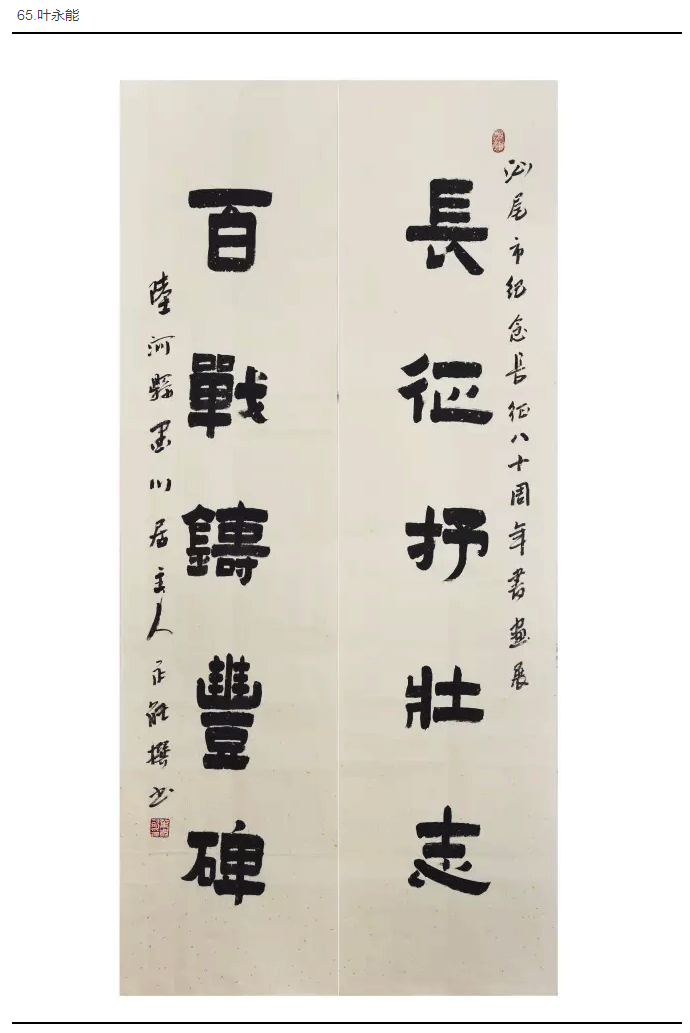 65.叶永能
汕尾市纪念長征八十周年書畫展
長征抒壯志
百戰鑄豐碑
陸河縣墨川居主人永能撰书